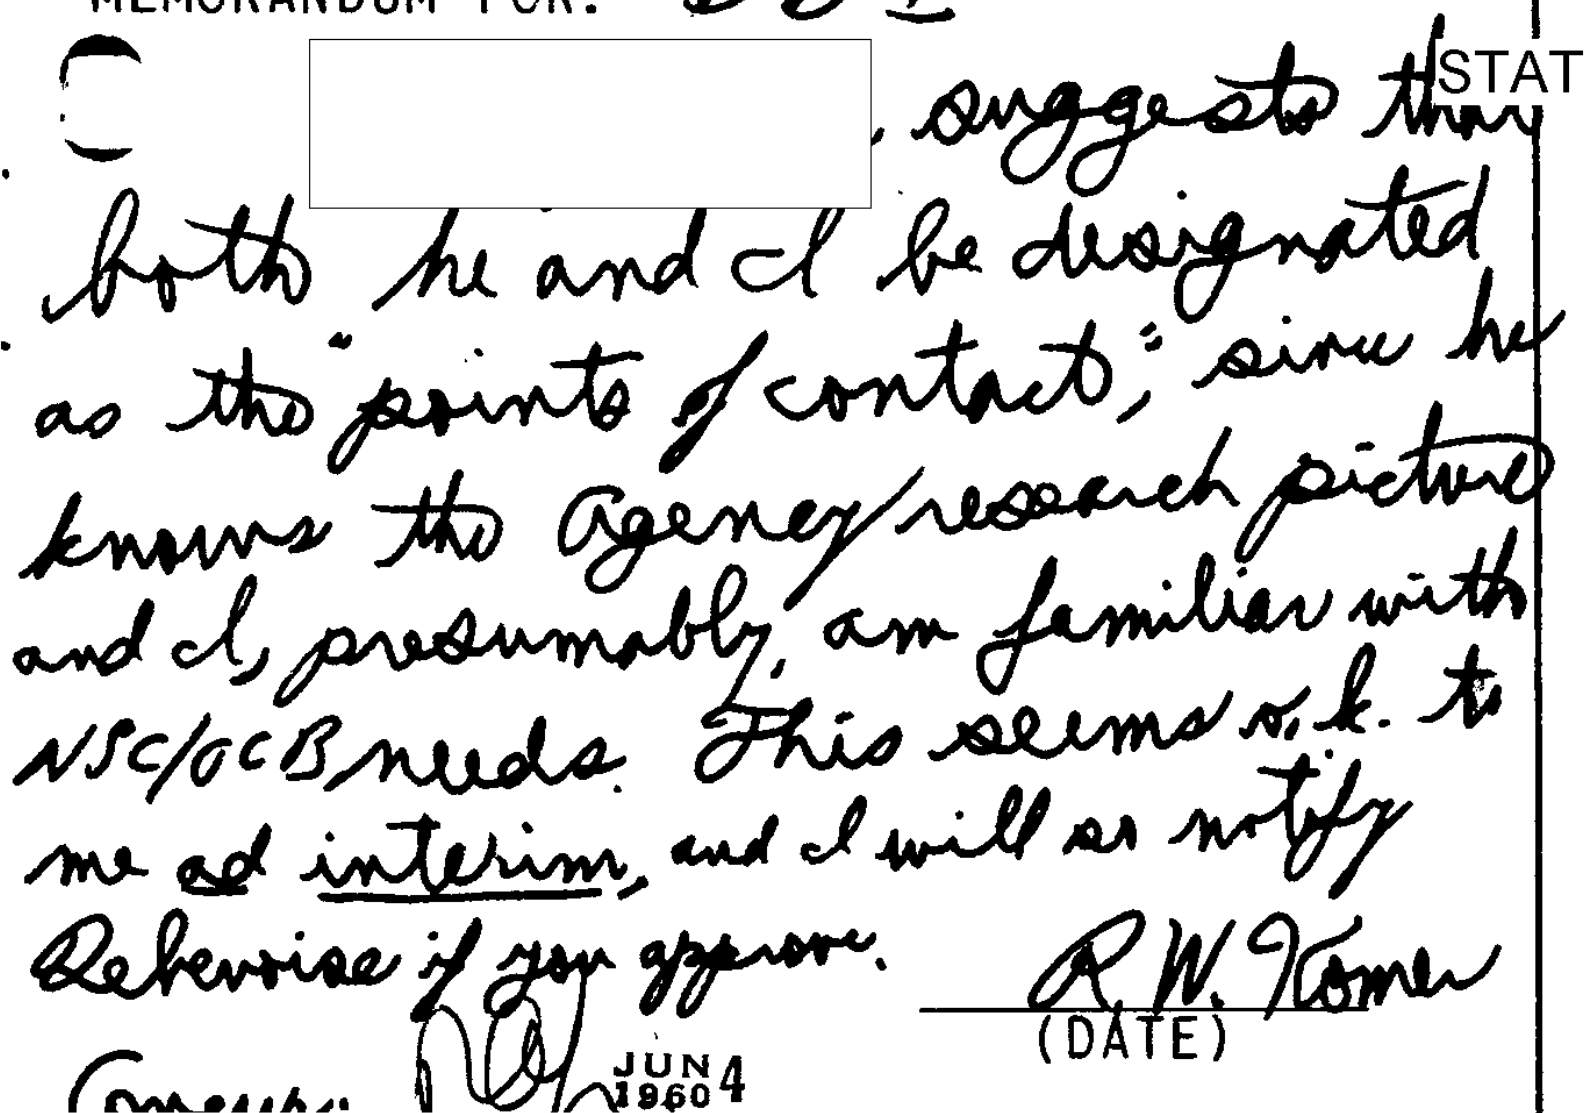 MEMORANDUM FOR: DDI
STAT
, suggests that
both he and I be designated
as the "points of contact," since he
knows the Agency research picture
and I, presumably, am familiar with
NSC/OCB needs. This seems o.k. to
me ad interim, and I will so notify
if you approve.
R.W. Komer
(DATE)
JUN 4
1960
Concur: